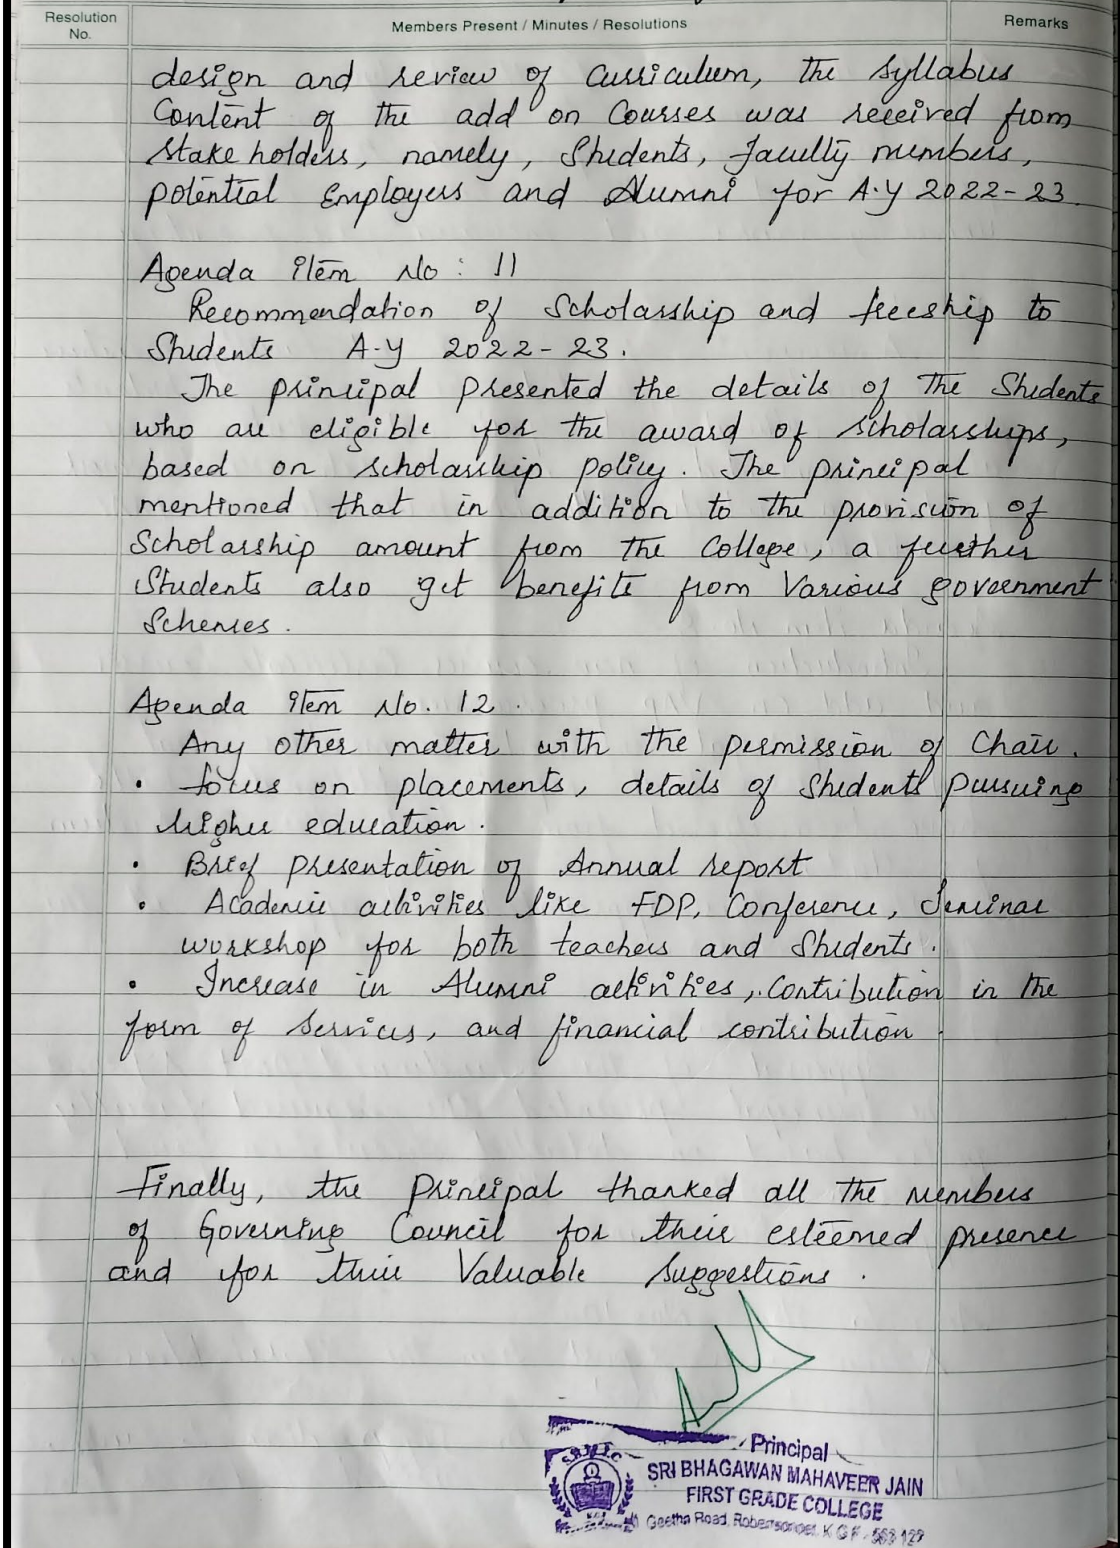 Resolution No.
Members Present / Minutes / Resolutions
Remarks
design and review of Curriculum, the Syllabus
Content of the add on Courses was received from
Stake holders, namely, Students, faculty members,
potential Employers and Alumni for A.Y 2022-23.
Agenda item No : 11
Recommendation of Scholarship and freeship to
Students A-Y 2022-23.
The principal presented the details of the Students
who are eligible for the award of scholarships,
based on scholarship policy. The principal
mentioned that in addition to the provision of
Scholarship amount from the College, a further
Students also get benefits from Various government
Schemes.
Agenda item No. 12.
Any other matter with the permission of Chair.
• focus on placements, details of Students pursuing
higher education.
• Brief presentation of Annual report
• Academic activities like FDP, Conference, Seminar
workshop for both teachers and Students.
• Increase in Alumni activities, Contribution in the
form of Services, and financial contribution
Finally, the Principal thanked all the members
of Governing Council for their esteemed presence
and for their Valuable Suggestions.
Principal
SRI BHAGAWAN MAHAVEER JAIN
FIRST GRADE COLLEGE
Geetha Road, Robertsonpet, K G F - 563 122